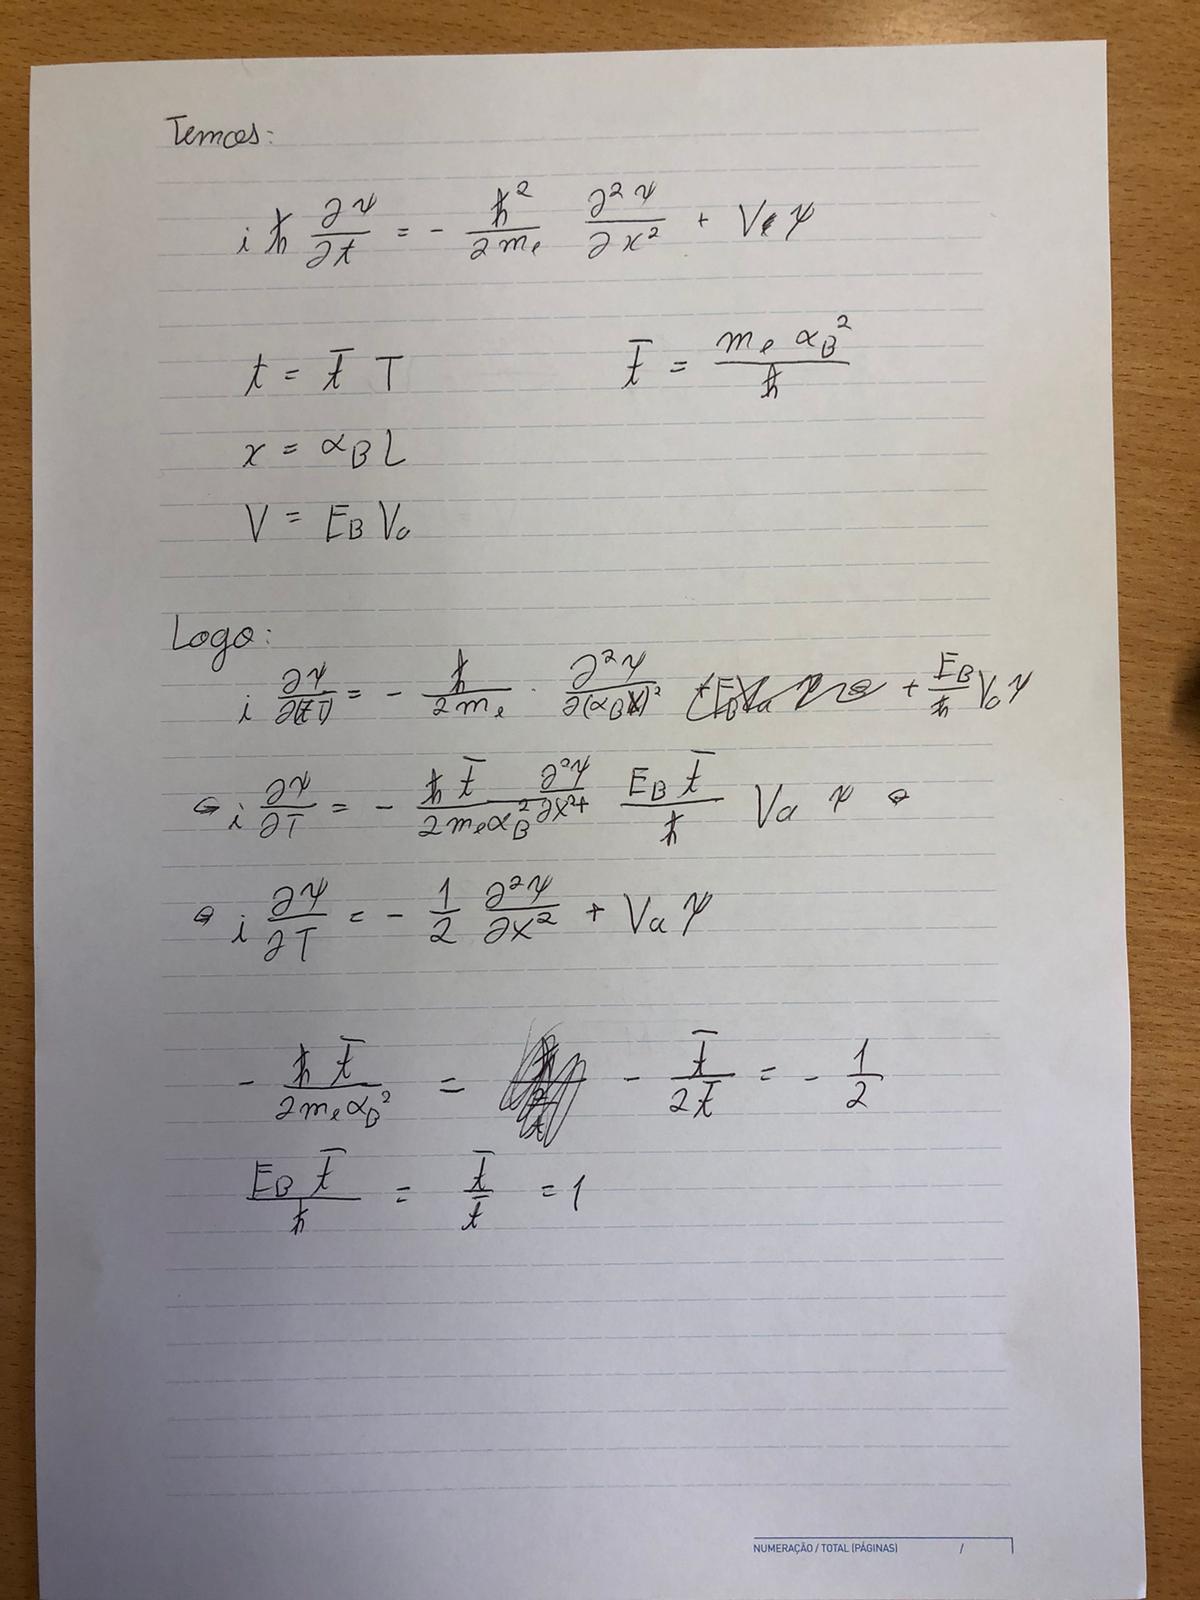 Temos:
i ħ ∂ψ/∂t = - ħ²/2mₑ ∂²ψ/∂x² + V ψ
t = t̄ T    t̄ = mₑ α_B²/ħ
x = α_B L
V = E_B Vₐ
Logo:
i ∂ψ/∂(t̄T) = - ħ/2mₑ · ∂²ψ/∂(α_B X)² + E_B/ħ Vₐ ψ
⇔ i ∂ψ/∂T = - ħ t̄/2mₑα_B² ∂²ψ/∂X² + E_B t̄/ħ Vₐ ψ ⇔
⇔ i ∂ψ/∂T = - 1/2 ∂²ψ/∂X² + Vₐ ψ
- ħ t̄/2mₑα_B² = - t̄/2t̄ = - 1/2
E_B t̄/ħ = t̄/t̄ = 1
NUMERAÇÃO / TOTAL (PÁGINAS) /